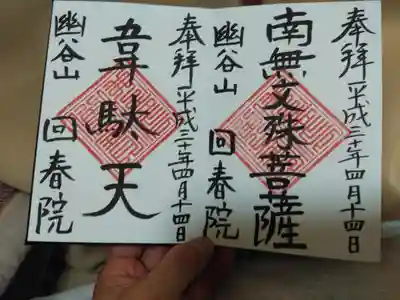 奉拝 平成三十年四月十四日
南無文殊菩薩
幽谷山 回春院
奉拝 平成三十年四月十四日
韋駄天
幽谷山 回春院